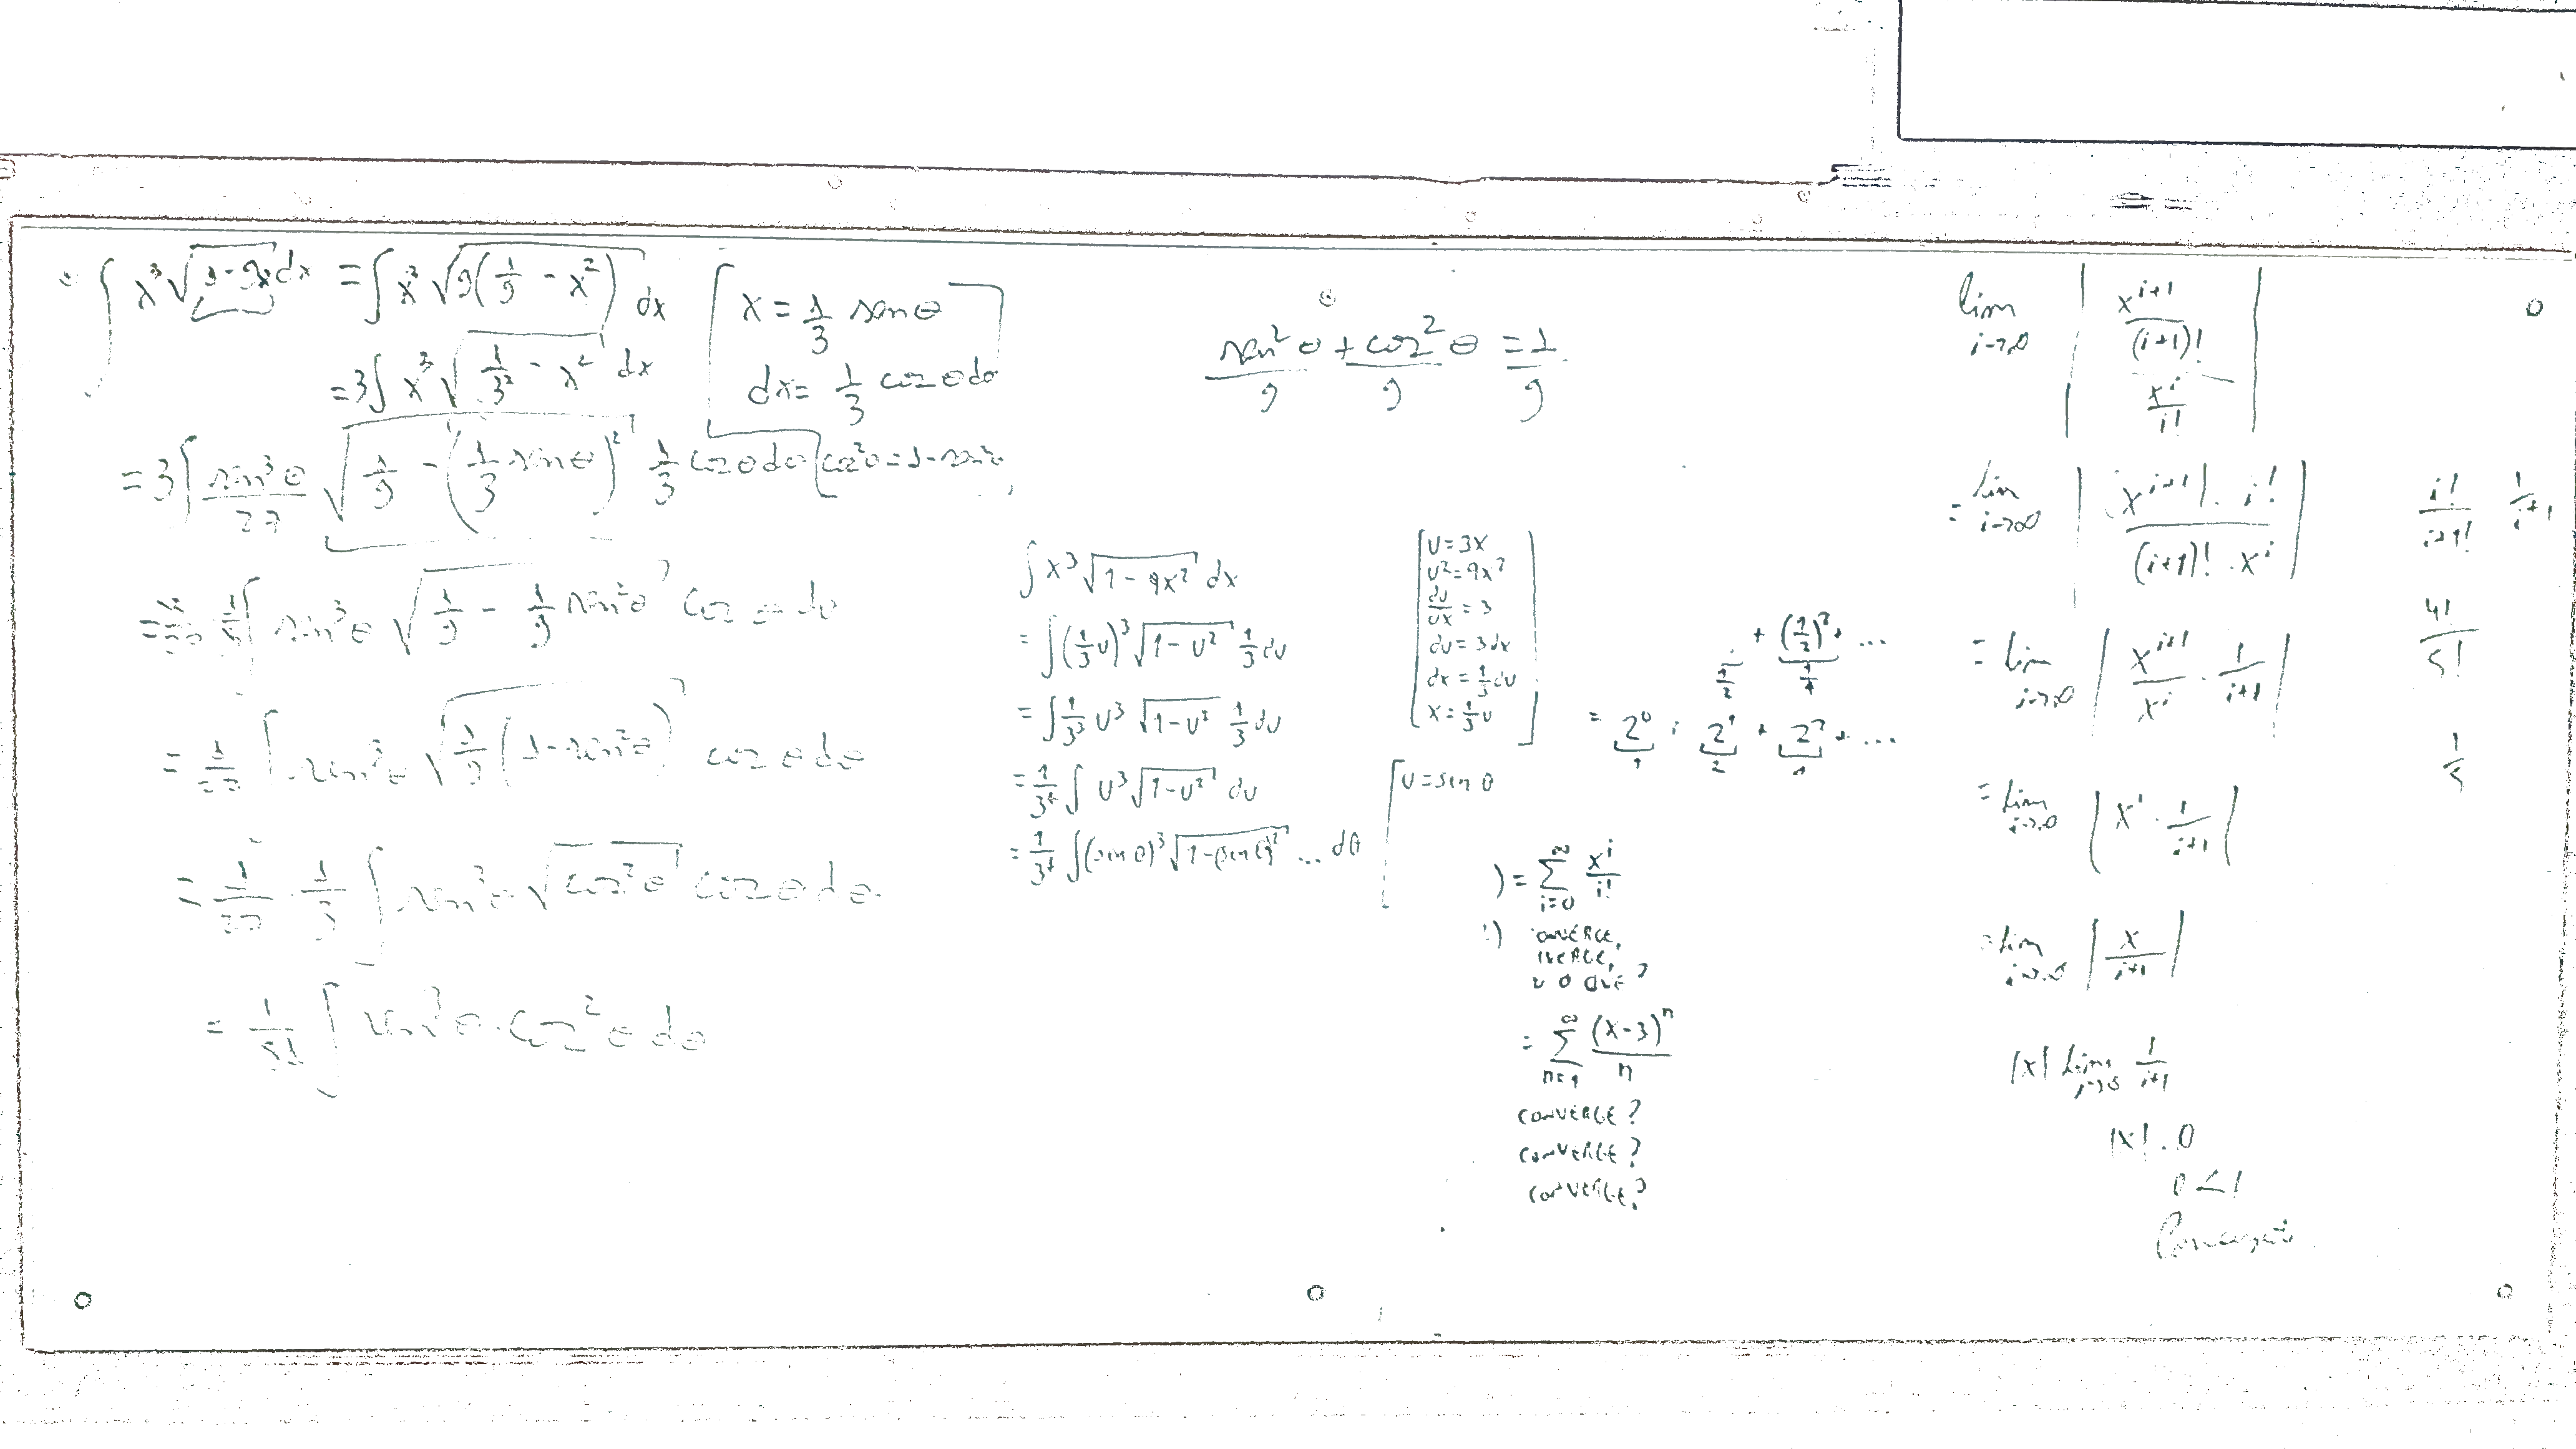 = ∫ x³ √(1-9x²) dx = ∫ x³ √(9(1/9 - x²)) dx
= 3∫ x³ √(1/3² - x²) dx
[ x = 1/3 sen θ
dx = 1/3 cos θ dθ ]
= 3∫ sen³θ/27 √(1/9 - (1/3 sen θ)²) 1/3 cos θ dθ [cos²θ = 1 - sen²θ
∫ sen³θ √(1/9 - 1/9 sen²θ) cos θ dθ
= 1/27 ∫ sen³θ √(1/9 (1 - sen²θ)) cos θ dθ
= 1/27 · 1/3 ∫ sen³θ √(cos²θ) cos θ dθ
= 1/81 ∫ sen³θ · cos²θ dθ
sen²θ/9 + cos²θ/9 = 1/9
∫ x³ √(1-9x²) dx
= ∫ (1/3 u)³ √(1-u²) 1/3 du
= ∫ 1/3³ u³ √(1-u²) 1/3 du
= 1/3⁴ ∫ u³ √(1-u²) du
= 1/3⁴ ∫ (sen θ)³ √(1-(sen θ)²) ... dθ
[ u = 3x
u² = 9x²
du/dx = 3
du = 3dx
dx = 1/3 du
x = 1/3 u ]
[ u = sen θ
1/2 + (1/2)² + ...
1/4
= 2⁰ + 2¹ + 2² + ...
1 2 4
) = ∑ i=0 ∞ xⁱ/i!
:) ONVERGE,
IVERGE,
U O QUÊ?
= ∑ n=1 ∞ (x-3)ⁿ/n
CONVERGE?
CONVERGE?
CONVERGE?
lim i→∞ | xⁱ⁺¹/(i+1)! / xⁱ/i! |
= lim i→∞ | xⁱ⁺¹ · i! / (i+1)! · xⁱ |
= lim i→∞ | xⁱ⁺¹/xⁱ · 1/i+1 |
= lim i→∞ | x¹ · 1/i+1 |
= lim i→∞ | x/i+1 |
|x| lim i→∞ 1/i+1
|x| · 0
0 < 1
i!/i+1! 1/i+1
4!/5!
1/5